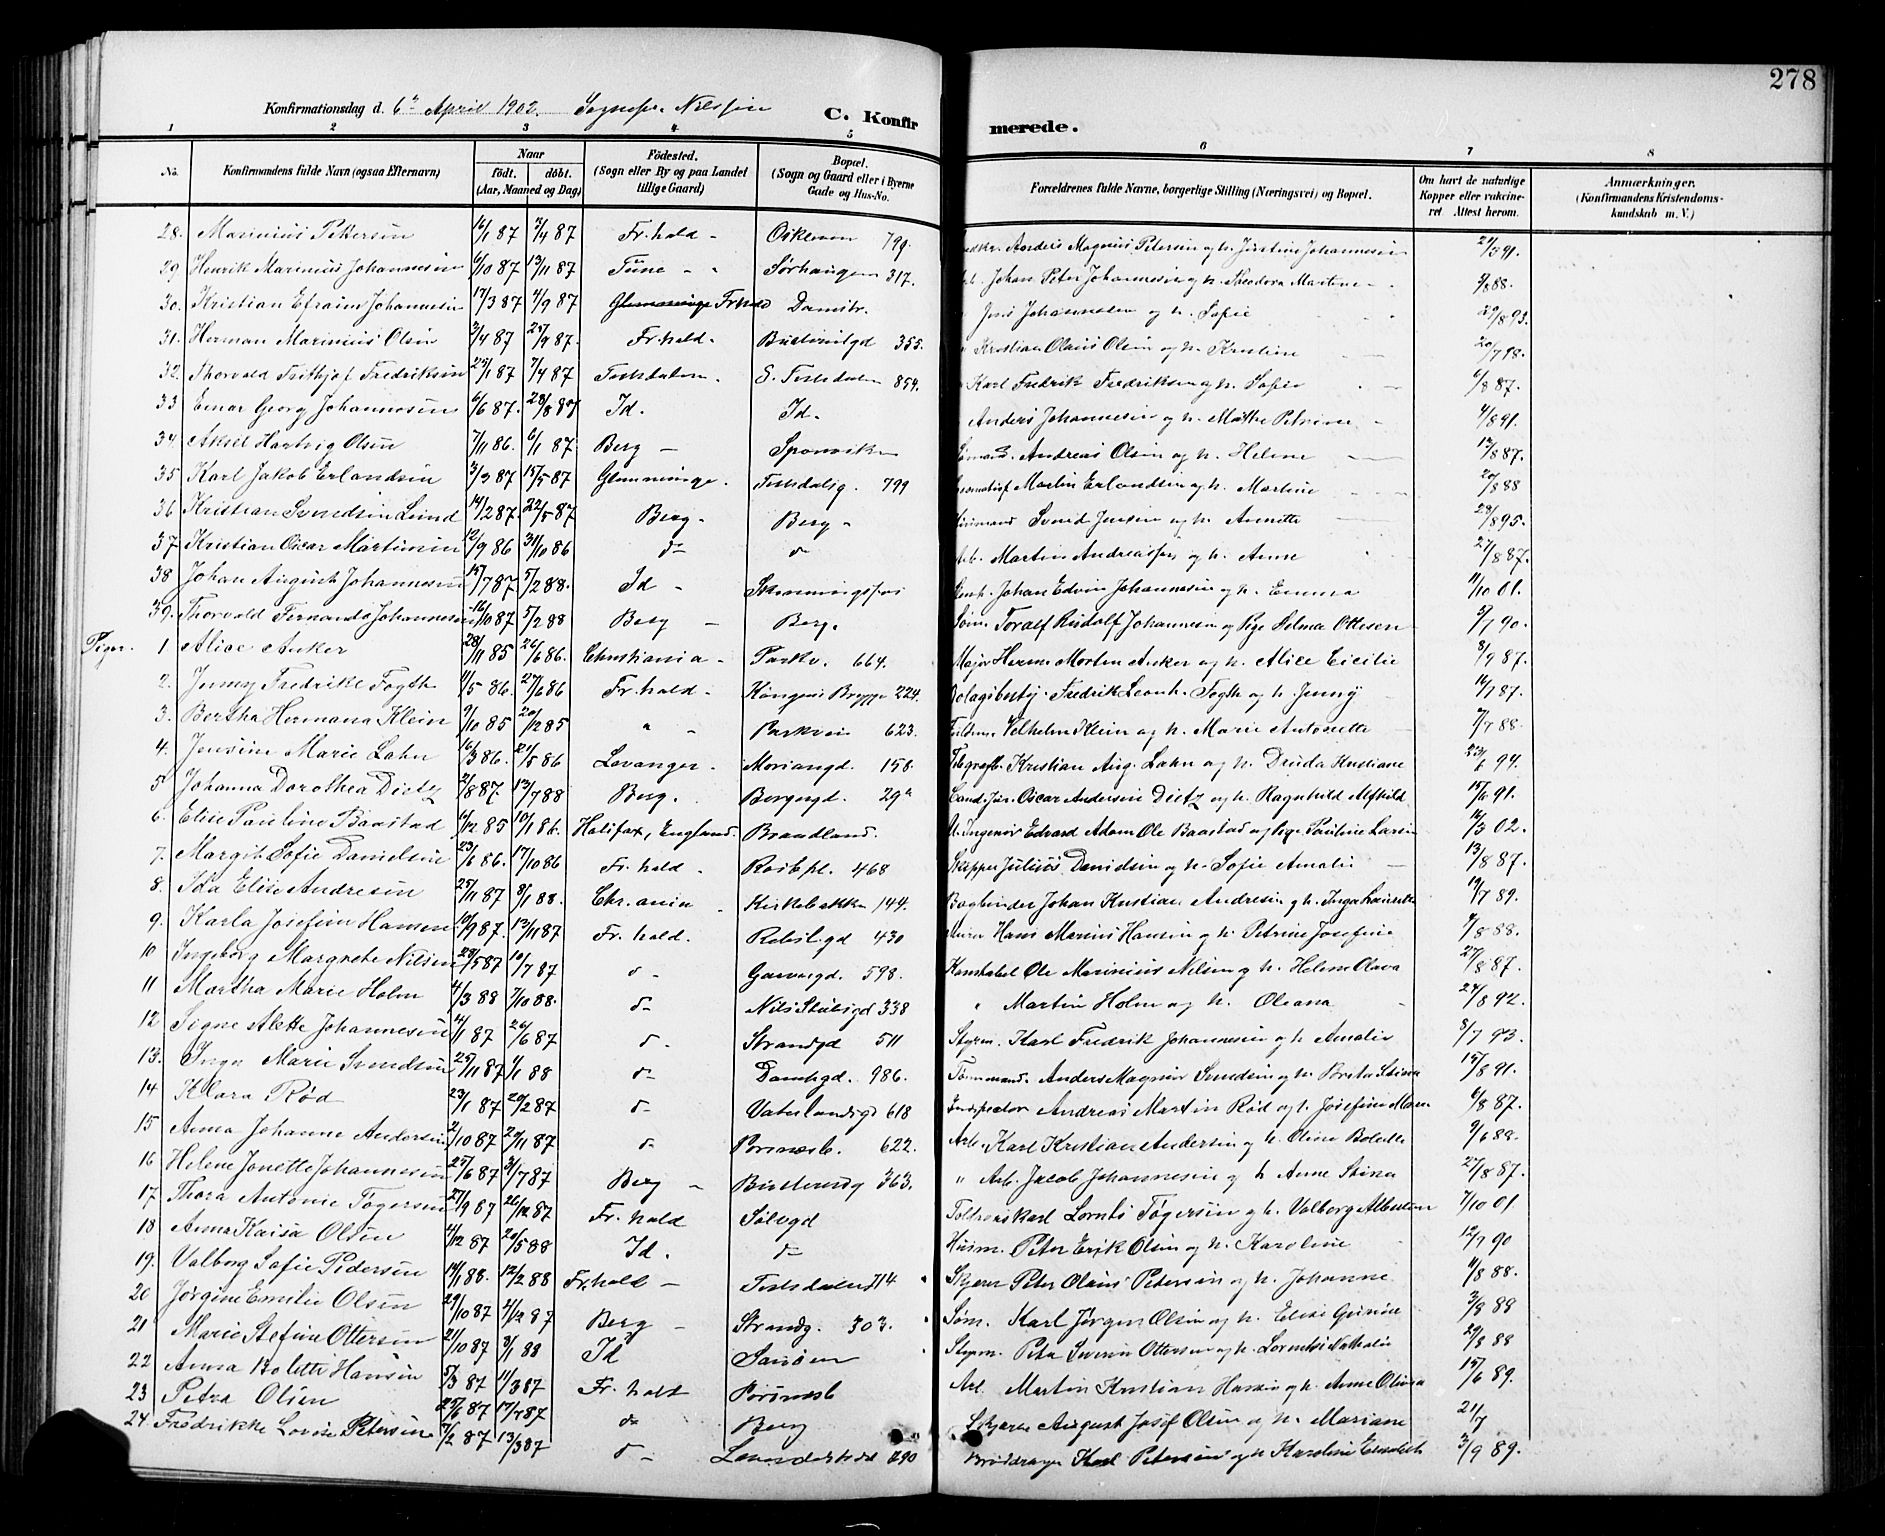 278
Konfirmationsdag d. 6te April 1902. Sognepr. Nilssen
C. Konfirmerede.
1 2 3 4 5 6 7 8
No. Konfirmandens fulde Navn (ogsaa Efternavn) Naar født. døbt. (Aar, Maaned og Dag) Födested. (Sogn eller By og paa Landet tillige Gaard) Bopæl. (Sogn og Gaard eller i Byerne Gade og Hus-No. Forældrenes fulde Navne, borgerlige Stilling (Næringsvei) og Bopæl. Om havt de naturlige Kopper eller vakcineret. Attest herom. Anmærkninger. (Konfirmandens Kristendomskundskab m. V.)
28. Marinius Pettersen 16/1 87 7/4 87 Fr.hald - 790. Anders Magnus Petersen og h. Justine Johannesen 21/8 91.
29 Henrik Marinius Johannesen 6/10 87 13/11 87 Tune - Sørhaugen 317. Johan Peter Johannesen og h. Theodora Martine 9/8 88.
30. Kristian Efraim Johannesen 17/3 87 4/9 87 Glemminge Fr.hald Damstr. Jens Johannesen og h. Sofie 29/8 93.
31. Herman Marinius Olsen 3/4 87 25/9 87. Fr.hald. 355. Kristian Olaus Olsen og h. Kristine 20/7 98.
32. Thorvald Frithjof Fredriksen 25/1 87 7/4 87 Tistedalen. S. Tistedalen 854. Karl Fredrik Fredriksen og h. Sofie 6/8 87.
33 Einar Georg Johannesen 6/6 87. 28/8 87 Id. Id. Anders Johannesen og h. Mathe Petrine 4/8 91.
34 Aksel Hartvig Olsen 7/11 86. 6/1 87 Berg - Sponviken Andreas Olsen og h. Helene 12/8 87.
35 Karl Jakob Erlandsen 3/3 87 15/5 87 Glemminge. Tistedalsg. 799 Martin Erlandsen og h. Martine 20/8 88
36 Kristian Svendsen Lund 14/2 87. 22/5 87 Berg. Berg. Svend Jensen og h. Annette 28/8 95.
37. Kristian Oscar Martinsen 12/9 86 31/10 86 do do Arb. Martin Andreassen og h. Anne 27/8 87.
38 Johan August Johannesen 15/7 87 5/2 88. Id - Skonningsfos Johan Edvin Johannesen og h. Emma 11/10 01.
39. Thorvald Fernando Johannesen 16/10 87 5/2 88 Berg - Berg. Søm. Toralf Rudolf Johannesen og Pige Selma Ottesen 5/7 90.
Piger. 1 Alice Anker 28/11 85 26/6 86. Christiania - Parkv. 664. Major Herm. Morten Anker og h. Alice Cicilie 8/9 87.
2. Jenny Fredrike Fogth 11/5 86. 27/6 86 Fr.hald - Kongens Brygge 224. Fredrik Leonh. Fogth og h. Jenny 14/7 87.
3. Bertha Hermana Klein 9/10 85 20/12 85 " - Parkvei 623. Vilhelm Klein og h. Marie Antonette 7/7 88.
4. Jensine Marie Lahn 16/3 86. 21/5 86 Levanger - Moriangd. 158. Telegrafb. Kristian Aug. Lahn og h. Druda Hustiane 23/6 94.
5 Johanna Dorothea Dietz 2/8 87. 13/7 88 Berg. Borgergd. 29a Cand. Jur. Oscar Andersen Dietz og h. Ragnhild Alfhild 15/6 91.
6. Elise Pauline Baastad 11/12 85 10/1 86. Halifax, England. Braadland. Ingeniør Edvard Adam Ole Baastad og Pige Pauline Larsen 14/3 02.
7. Margit Sofie Danielsen 23/6 86. 17/10 86 Fr.hald - 468 Skipper Julius Danielsen og h. Sofie Amalie 13/8 87.
8. Ida Elise Andresen 25/11 87 8/1 88. Chr.ania - Kirkebakken 144. Bogbinder Johan Kristian Andresen og h. Inga Laurette 19/7 89.
9. Karla Josefine Hansen 10/9 87. 13/11 87 Fr.hald. Rebslgd 430 Murer Hans Marius Hansen og h. Petrine Josefine 9/8 88.
10 Ingeborg Margrete Nilsen 28/5 87 10/7 87 do - Garvergd. 598. Konstabel Ole Marinius Nilsen og h. Helene Olava 27/8 87.
11 Martha Marie Holm 4/3 88 7/10 88. do - Nils Stubsgd 338 " Martin Holm og h. Oleana 24/8 92.
12 Signe Alette Johannesen 4/1 87 26/6 87 do. Strandgd 511 Styrm. Karl Fredrik Johannesen og h. Amalie 8/7 93.
13. Inga Marie Svendsen 25/11 87 1/1 88 do Damhgd. 986. Tømmermand. Anders Magnus Svendsen og h. Berta Stina 15/8 91.
14 Klara Rød 23/1 87 20/2 87 do Vaterlandsgd 618 Inspektør Andreas Martin Rød og h. Josefine Maren 6/8 87.
15 Anna Johanne Andersen 2/10 87 27/11 87 do 622. Arb. Karl Kristian Andersen og h. Oline Bolette 9/6 88.
16 Helene Jonette Johannesen 25/6 87 31/7 87 Berg - 363. " Arb. Jacob Johannesen og h. Anne Stina 27/8 87.
17. Thora Antonie Tøgersen 27/9 87 26/12 87 Fr.hald Sølvgd Toldroerskarl Lornts Tøgersen og h. Valborg Albertine 7/10 01.
18 Anna Kaisa Olsen 4/12 87 20/5 88 Id. do Husm. Peter Erik Olsen og h. Karoline 12/7 90
19. Valborg Sofie Pedersen 14/1 88. 12/2 88 Fr.hald - Tistedalen 714 Skjærer Peter Olaus Petersen og h. Johanne 11/8 88.
20 Jørgine Emilie Olsen 29/10 87 4/12 87 Berg - Strandg. 303. Søm. Karl Jørgen Olsen og h. Elise Gurine 3/8 88
21 Marie Stefine Ottersen 21/10 87 8/1 88 Id Sanøen Styrm. Peter Severin Ottersen og h. Lorentse Nathalie 29/8 88
22 Anna Bolette Hansen 5/3 87 11/3 87 Fr.hald Arb. Martin Kristian Hansen og h. Anne Olina 15/6 89.
23 Petra Olsen 25/6 87 17/7 87 do Berg Skjærer August Josef Olsen og h. Mariane 21/7
24 Fredrikke Lovise Petersen 7/2 87 13/3 87 do - 290 Karl Petersen og h. Karoline Elisabeth 3/9 89.